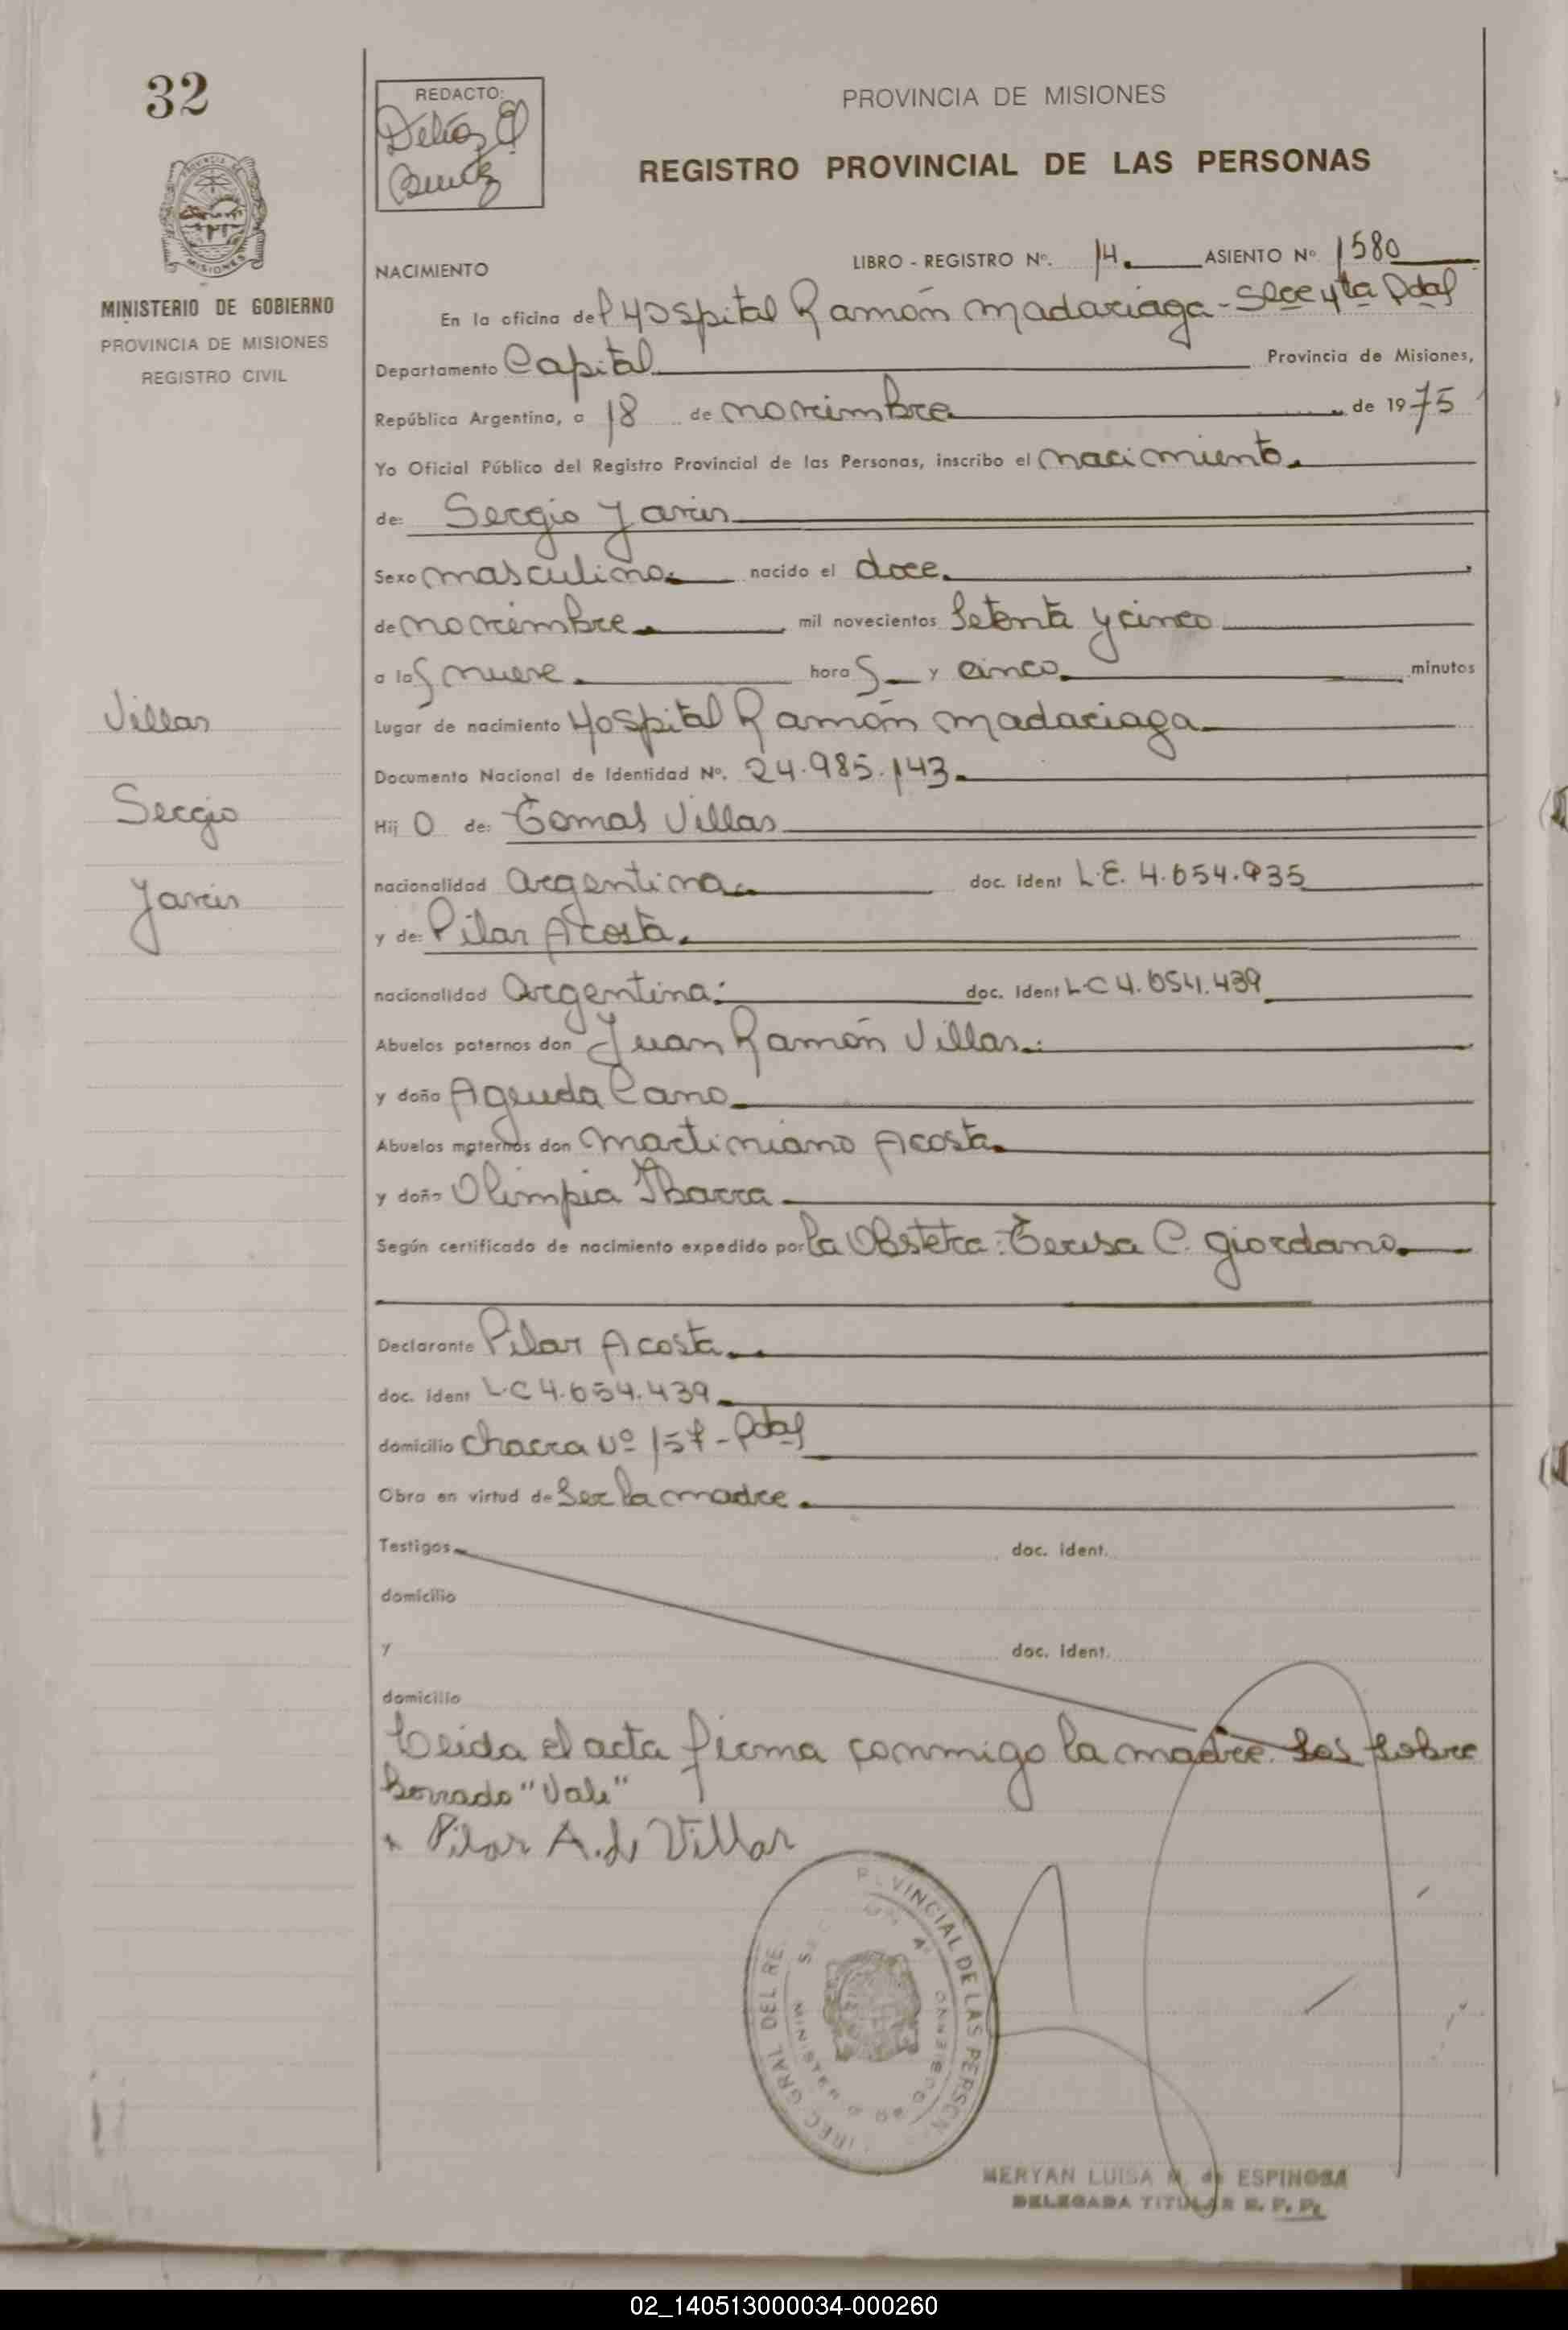 32
REDACTO:
PROVINCIA DE MISIONES
REGISTRO PROVINCIAL DE LAS PERSONAS
MINISTERIO DE GOBIERNO
PROVINCIA DE MISIONES
REGISTRO CIVIL
NACIMIENTO
LIBRO - REGISTRO Nº. 14. ASIENTO Nº 1580
En la oficina del Hospital Ramón Madariaga - Secc 4ta Pdas
Departamento Capital Provincia de Misiones,
República Argentina, a 18 de noviembre de 1975
Yo Oficial Público del Registro Provincial de las Personas, inscribo el nacimiento.
de: Sergio Javier
Sexo masculino. nacido el doce.
de noviembre. mil novecientos Setenta y cinco
a las nueve. horas y cinco. minutos
Lugar de nacimiento Hospital Ramón Madariaga
Documento Nacional de Identidad Nº. 24.985.143.
Hijo de: Tomas Villar
nacionalidad argentina. doc. ident L.E. 4.654.935
y de: Pilar Acosta.
nacionalidad Argentina: doc. ident L-C 4.654.439
Abuelos paternos don Juan Ramón Villar.
y doña Agueda Cano
Abuelos maternos don Martiniano Acosta.
y doña Olimpia Ibarra
Según certificado de nacimiento expedido por la Obstetra: Teresa C. Giordano.
Declarante Pilar Acosta.
doc. ident L-C 4.654.439
domicilio Chacra Nº 157 - Pdas
Obra en virtud de Ser la madre.
Testigos doc. ident.
domicilio
y doc. ident.
domicilio
Leida el acta firma conmigo la madre. Los sobre
borrado "Vale"
Pilar A. de Villar
Villar
Sergio
Javier
MINISTERIO DE GOBIERNO
MERYAN LUISA M. de ESPINOSA
DELEGADA TITULAR R. P. P.
02_140513000034-000260